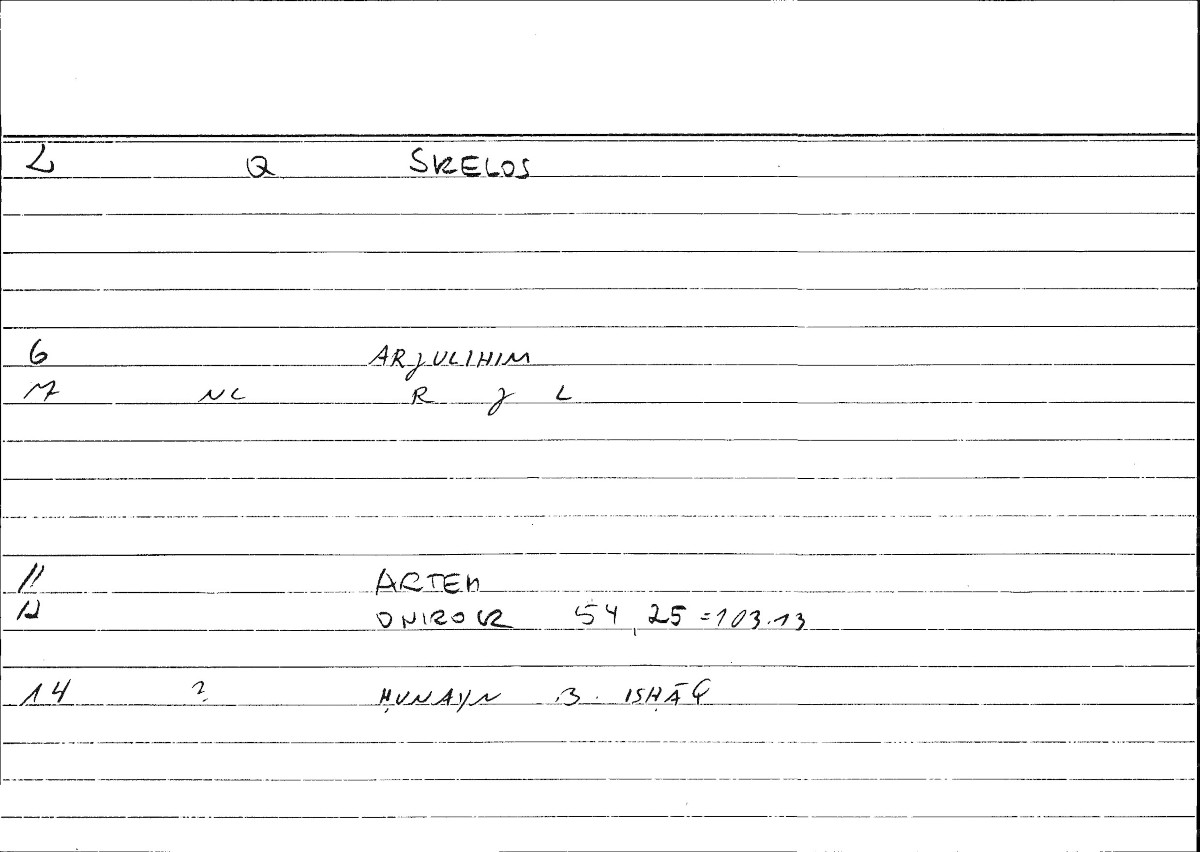 2 Q SKELOS
6 ARJULIHIM
7 NL R J L
11 ARTEM
12 ONIROKR 54,25=103.13
14 ? ḤUNAYN B. ISḤĀQ